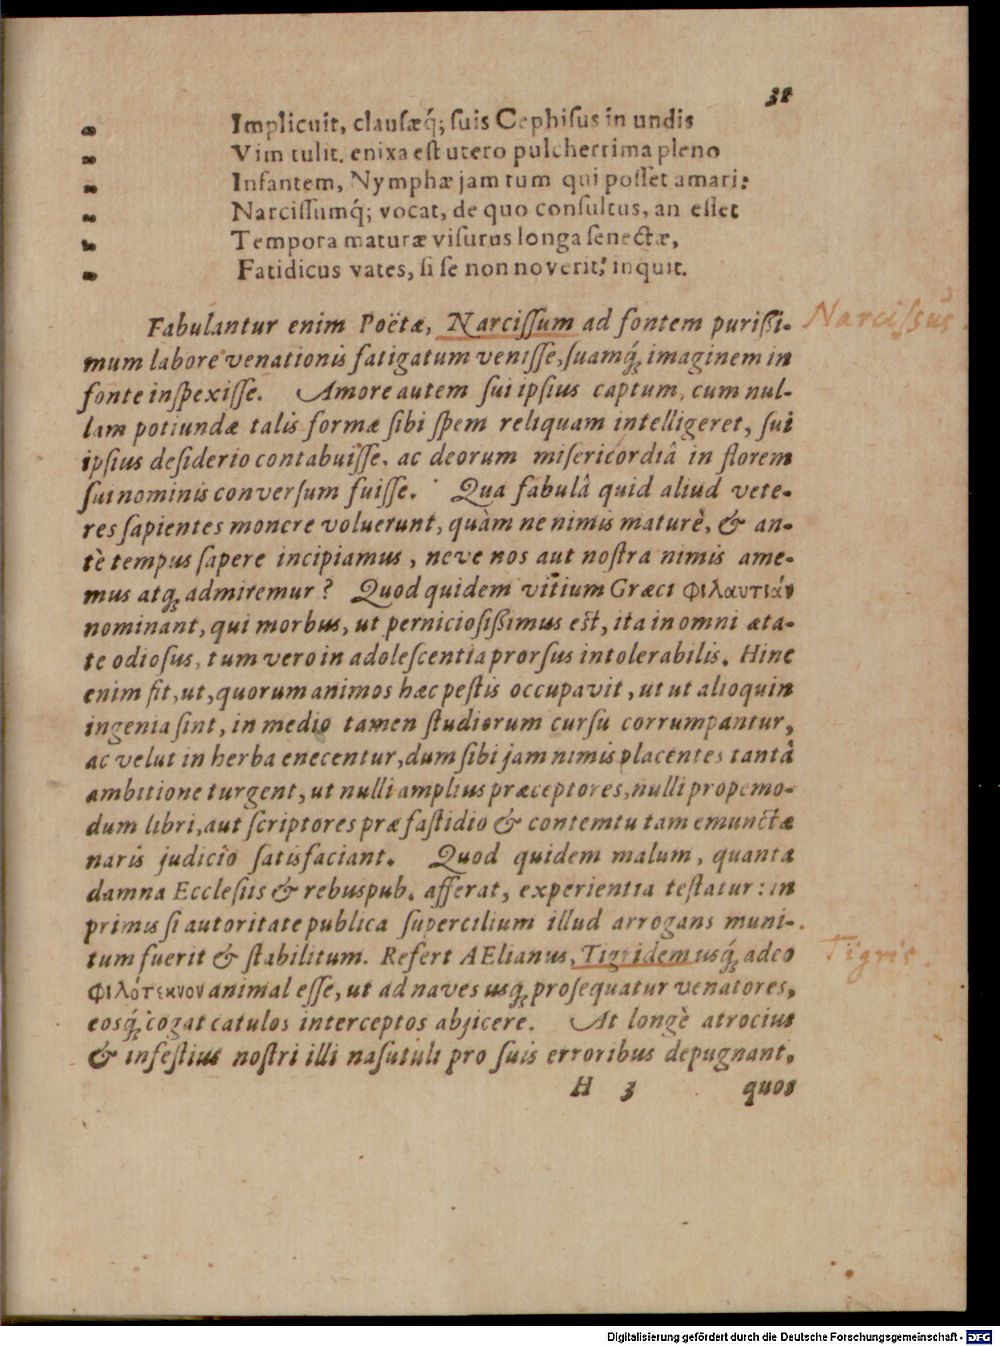 31
„ Implicuit, clausæq́; suis Cephisus in undis
„ Vim tulit. enixa est utero pulcherrima pleno
„ Infantem, Nymphæ jam tum qui posset amari:
„ Narcissumq́; vocat, de quo consultus, an esset
„ Tempora maturæ visurus longa senectæ,
„ Fatidicus vates, si se non noverit: inquit.
Fabulantur enim Poëtæ, Narcissum ad fontem purißi-
mum labore venationis fatigatum venisse, suamq́; imaginem in
fonte inspexisse. Amore autem sui ipsius captum, cum nul-
lam potiundæ talis formæ sibi spem reliquam intelligeret, sui
ipsius desiderio contabuisse, ac deorum misericordiâ in florem
sui nominis conversum fuisse. Qua fabulâ quid aliud vete-
res sapientes monere voluerunt, quàm ne nimis maturè, & an-
tè tempus sapere incipiamus, neve nos aut nostra nimis ame-
mus atq; admiremur? Quod quidem vitium Græci φιλαυτιάν
nominant, qui morbus, ut perniciosißimus est, ita in omni æta-
te odiosus, tum vero in adolescentia prorsus intolerabilis. Hinc
enim fit, ut, quorum animos hæc pestis occupavit, ut ut alioquin
ingenia sint, in medio tamen studiorum cursu corrumpantur,
ac velut in herba enecentur, dum sibi jam nimis placentes tantâ
ambitione turgent, ut nulli amplius præceptores, nulli propemo-
dum libri, aut scriptores præ fastidio & contemtu tam emunctæ
naris judicio satisfaciant. Quod quidem malum, quanta
damna Ecclesiis & rebuspub. afferat, experientia testatur: in
primis si autoritate publica supercilium illud arrogans muni-
tum fuerit & stabilitum. Refert AElianus, Tigridem usq́; adeo
φιλότεκνον animal esse, ut ad naves usq; prosequatur venatores,
eosq́; cogat catulos interceptos abjicere. At longè atrocius
& infestius nostri illi nasutuli pro suis erroribus depugnant,
H 3 quos
Narcissus.
Tigris.
Digitalisierung gefördert durch die Deutsche Forschungsgemeinschaft - DFG